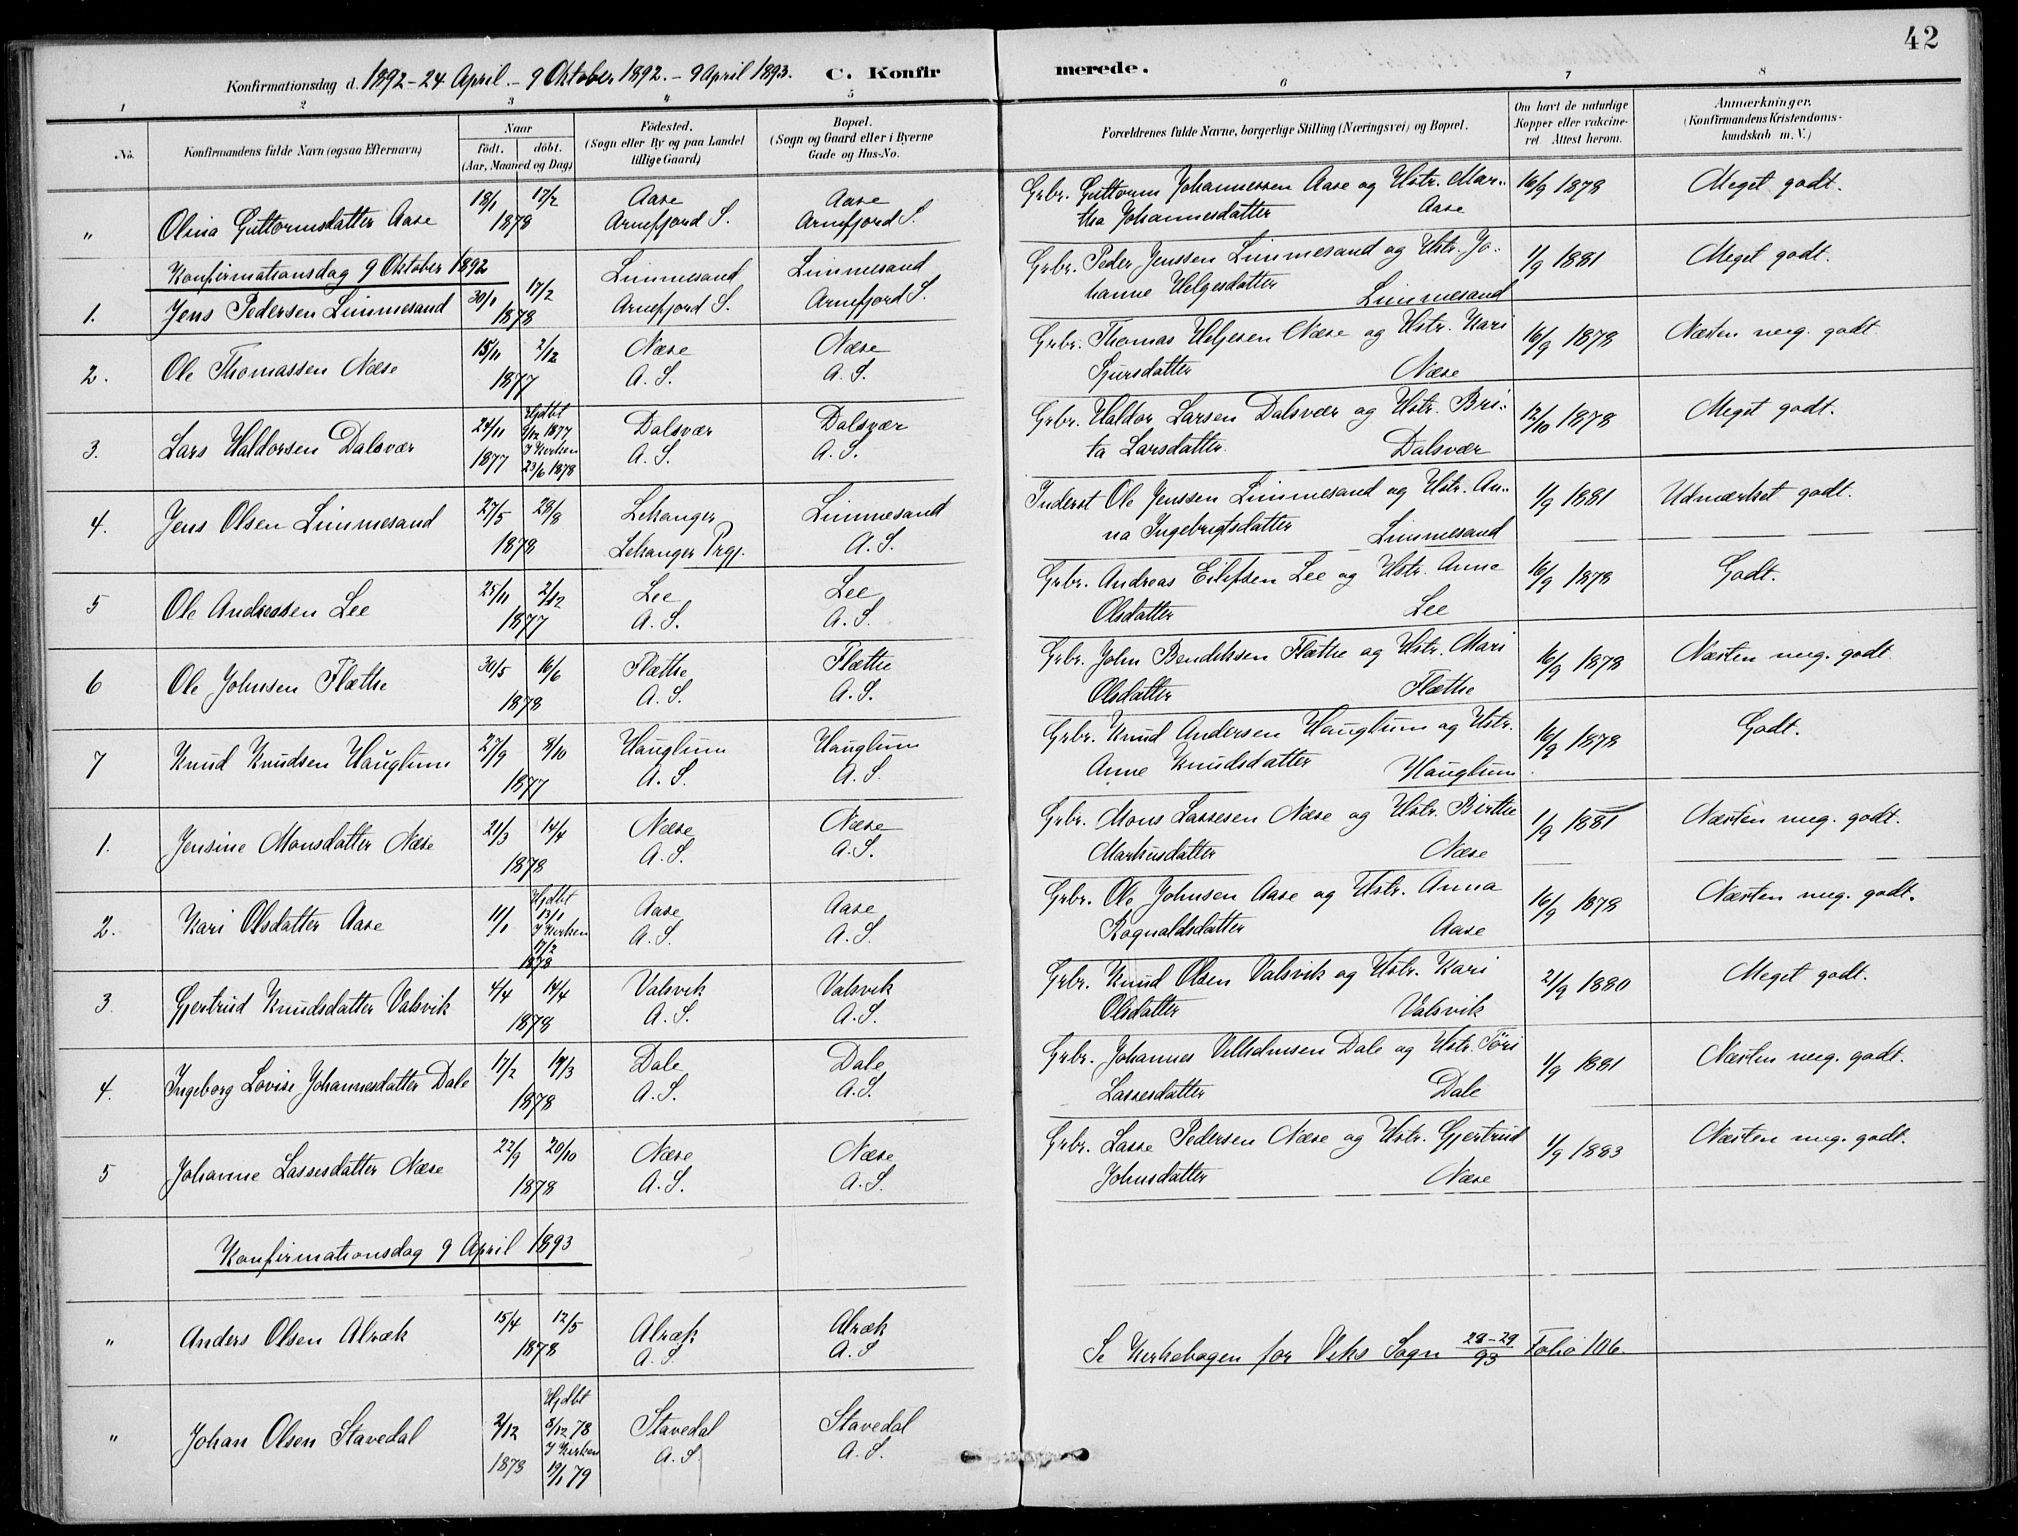 42
Konfirmationsdag d. 1892 - 24 April. - 9 Oktober 1892. - 9 April 1893. C. Konfirmerede.
1 2 3 4 5 6 7 8
No.
Konfirmandens fulde Navn (ogsaa Efternavn)
Naar
födt. döbt.
(Aar, Maaned og Dag)
Födested.
(Sogn eller By og paa Landet
tillige Gaard)
Bopæl.
(Sogn og Gaard eller i Byerne
Gade og Hus-No.
Forældrenes fulde Navne, borgerlige Stilling (Næringsvei) og Bopæl.
Om havt de naturlige
Kopper eller vakcine-
ret Attest herom.
Anmærkninger.
(Konfirmandens Kristendoms-
kundskab m. V.)
18/1 17/2 Aase Aase Grbr. Guttorm Johannessen Aase og Hstr. Mar- 16/9 1878 Meget godt.
" Olina Guttormsdatter Aase 1878 Arnefjord S. Arnefjord S. tha Johannesdatter Aase
Konfirmationsdag 9 Oktober 1892
17/2 Limmesand Limmesand Grbr. Peder Jenssen Limmesand og Hstr. Jo- 1/9 1881 Meget godt.
1. Jens Pedersen Limmesand 30/1 1878 Arnefjord S. Arnefjord S. hanne Helgesdatter Limmesand
15/11 2/12 Næse Næse Grbr. Thomas Helgesen Næse og Hstr. Kari 16/9 1878 Næsten meg. godt
2. Ole Thomassen Næse 1877 A. S. A. S. Sjursdatter Næse
24/11 Hjdbt 9/12 1877 Dalsvær Dalsvær Grbr. Haldor Larsen Dalsvær og Hstr. Bri- 12/10 1878 Meget godt.
3. Lars Haldorsen Dalsvær 1877 I Kirken 23/6 1878 A. S. A. S. ta Larsdatter. Dalsvær
27/5 28/8 Lekanger Limmesand Inderst Ole Jenssen Limmesand og Hstr. An- 1/9 1881 Udmærket godt.
4. Jens Olsen Limmesand 1878 Lekanger Prgj. A. S. na Ingebrigtsdatter Limmesand
25/11 2/12 Lee Lee Grbr. Andreas Eilifsen Lee og Hstr. Anne 16/9 1878 Godt.
5 Ole Andreassen Lee 1877 A. S. A. S. Olsdatter Lee
30/5 16/6 Flæthe Flæthe Grbr. John Bendiksen Flæthe og Hstr. Mari 16/9 1878 Næsten meg. godt
6 Ole Johnsen Flæthe 1878 A. S. A. S. Olsdatter Flæthe
27/9 8/10 Hauglum Hauglum Grbr. Knud Andersen Hauglum og Hstr. 16/9 1878 Godt.
7 Knud Knudsen Hauglum 1877 A. S. A. S. Anne Knudsdatter Hauglum
21/3 14/4 Næse Næse Grbr. Mons Lassesen Næse og Hstr. Birthe 1/9 1881 Næsten meg. godt.
1. Jensine Monsdatter Næse 1878 A. S. A. S. Markusdatter Næse
11/1 Hjdbt 13/1 Aase Aase Grbr. Ole Johnsen Aase og Hstr. Anna 16/9 1878 Næsten meg. godt.
2. Kari Olsdatter Aase I Kirken 17/2 1878 A. S. A. S. Rognaldsdatter Aase
4/4 14/4 Valsvik Valsvik Grbr. Knud Olsen Valsvik og Hstr. Kari 21/9 1880 Meget godt.
3 Gjertrud Knudsdatter Valsvik 1878 A. S. A. S. Olsdatter Valsvik
17/2 19/3 Dale Dale Grbr. Johannes Vilhelmsen Dale og Hstr. Töri 1/9 1881 Næsten meg. godt.
4. Ingeborg Lovise Johannesdatter Dale 1878 A. S. A. S. Lassesdatter Dale
22/9 20/10 Næse Næse Grbr. Lasse Pedersen Næse og Hstr. Gjertrud 1/9 1883 Næsten meg. godt.
5 Johanne Lassesdatter Næse 1878 A. S. A. S. Johnsdatter Næse
Konfirmationsdag 9 April 1893
15/4 12/5 Alræk Alræk
" Anders Olsen Alræk 1878 A. S. A. S. Se Kirkebogen for Viks Sogn 28-29/93 Folio 106.
2/12 Hjdbt 8/12 78 Stavedal Stavedal
" Johan Olsen Stavedal 1878 I Kirken 19/1 79 A. S. A. S.